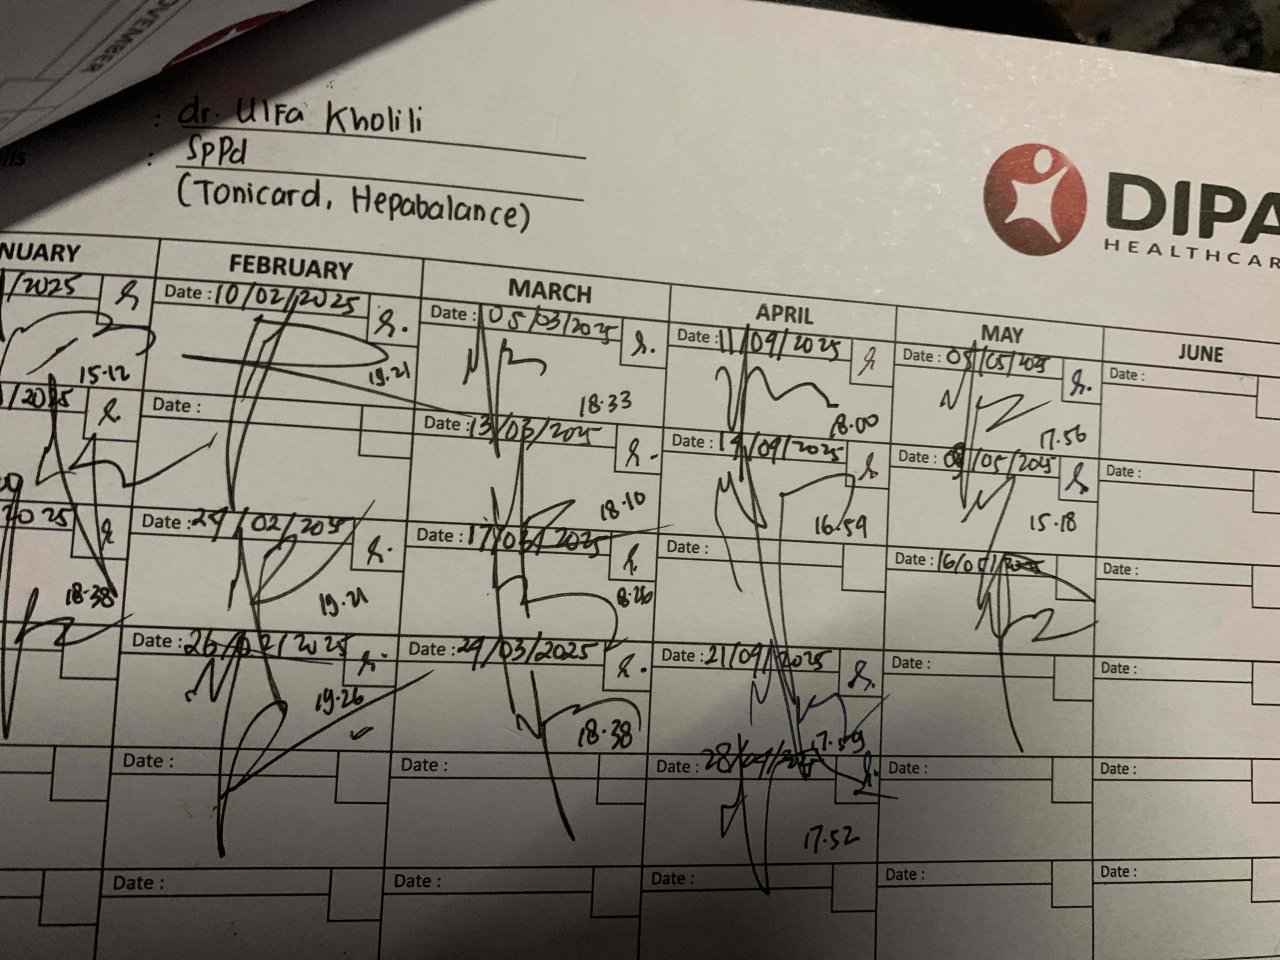 NOVEMBER
: dr. Ulfa Kholili
: SpPd
(Tonicard, Hepabalance)
DIPA
HEALTHCAR
NUARY FEBRUARY MARCH APRIL MAY JUNE
/2025 Date : 10/02/2025 Date : 05/03/2025 Date : 11/04/2025 Date : 05/05/2025 Date :
15.12 19.21 18.33 18.00 17.56
/2025 Date : Date : 13/03/2025 Date : 14/04/2025 Date : /05/2025 Date :
18.10 16.59 15.18
2025 Date : 24/02/2025 Date : 17/03/2025 Date : Date : 16/05/ Date :
18.38 19.21 18.26
Date : 26/02/2025 Date : 24/03/2025 Date : 21/04/2025 Date : Date :
19.26 18.38 17.59
Date : Date : Date : 28/04/ Date : Date :
17.52
Date : Date : Date : Date : Date :